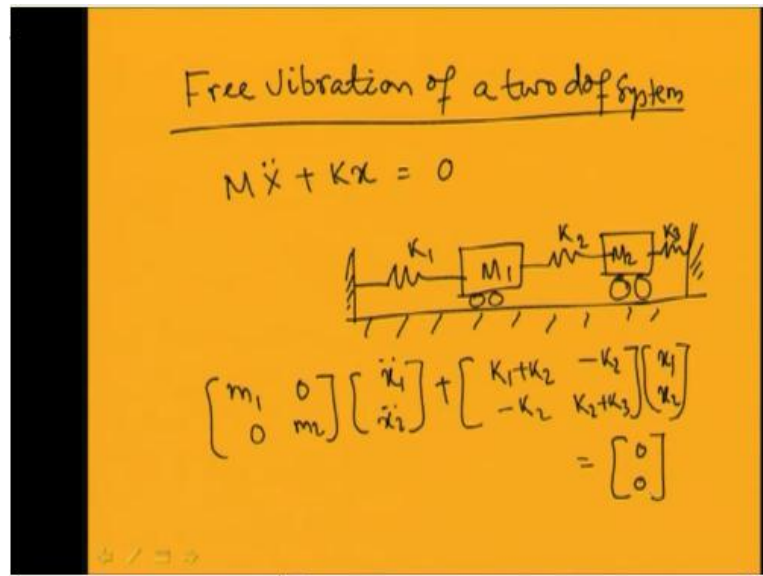 Free vibration of a two dof system
MẌ + Kx = 0
K₁ M₁ K₂ M₂ K₃
[m₁ 0] [ẍ₁] + [K₁+K₂ -K₂] [x₁]
[0 m₂] [ẍ₂] [-K₂ K₂+K₃] [x₂]
= [0]
[0]